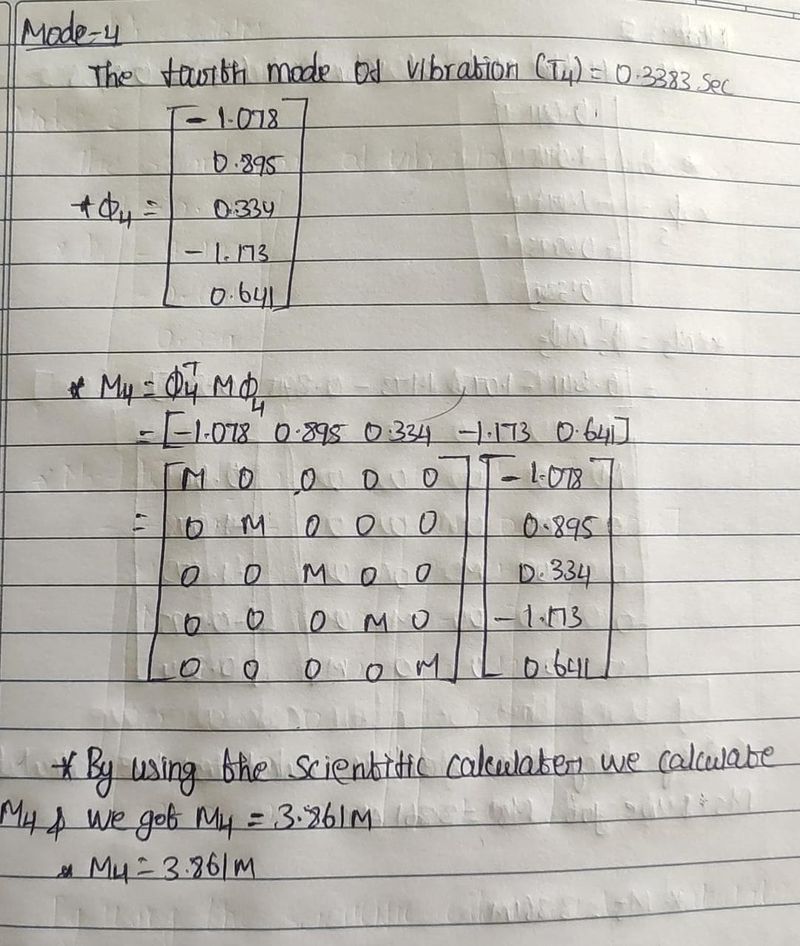 Mode-4
The fourth mode of vibration (T4) = 0.3383 Sec
* Φ4 = [ -1.078
0.895
0.334
-1.173
0.641 ]
* M4 = Φ4^T M Φ4
= [-1.078 0.895 0.334 -1.173 0.641]
[ M 0 0 0 0 ] [ -1.078
= 0 M 0 0 0 0.895
0 0 M 0 0 0.334
0 0 0 M 0 -1.173
0 0 0 0 M ] 0.641 ]
* By using the scientific calculater, we calculate
M4 & we get M4 = 3.861M
* M4 = 3.861M